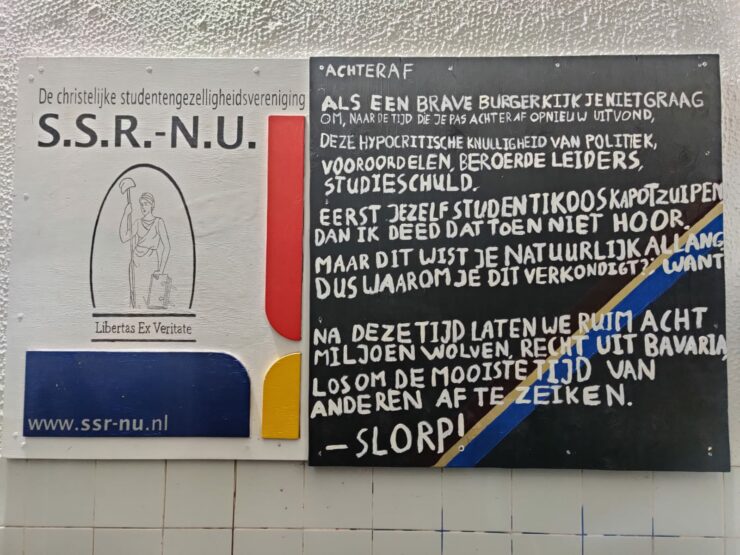 De christelijke studentengezelligheidsvereniging
S.S.R.-N.U.
Libertas Ex Veritate
www.ssr-nu.nl
ACHTERAF
ALS EEN BRAVE BURGER KIJK JE NIET GRAAG
OM, NAAR DE TIJD DIE JE PAS ACHTERAF OPNIEUW UITVOND,
DEZE HYPOCRITISCHE KNULLIGHEID VAN POLITIEK,
VOOROORDELEN, BEROERDE LEIDERS,
STUDIESCHULD.
EERST JEZELF STUDENTIKOOS KAPOTZUIPEN
DAN IK DEED DAT TOEN NIET HOOR.
MAAR DIT WIST JE NATUURLIJK ALLANG
DUS WAAROM JE DIT VERKONDIGT?: WANT
NA DEZE TIJD LATEN WE RUIM ACHT
MILJOEN WOLVEN, RECHT UIT BAVARIA,
LOS OM DE MOOISTE TIJD VAN
ANDEREN AF TE ZEIKEN.
– SLORP!